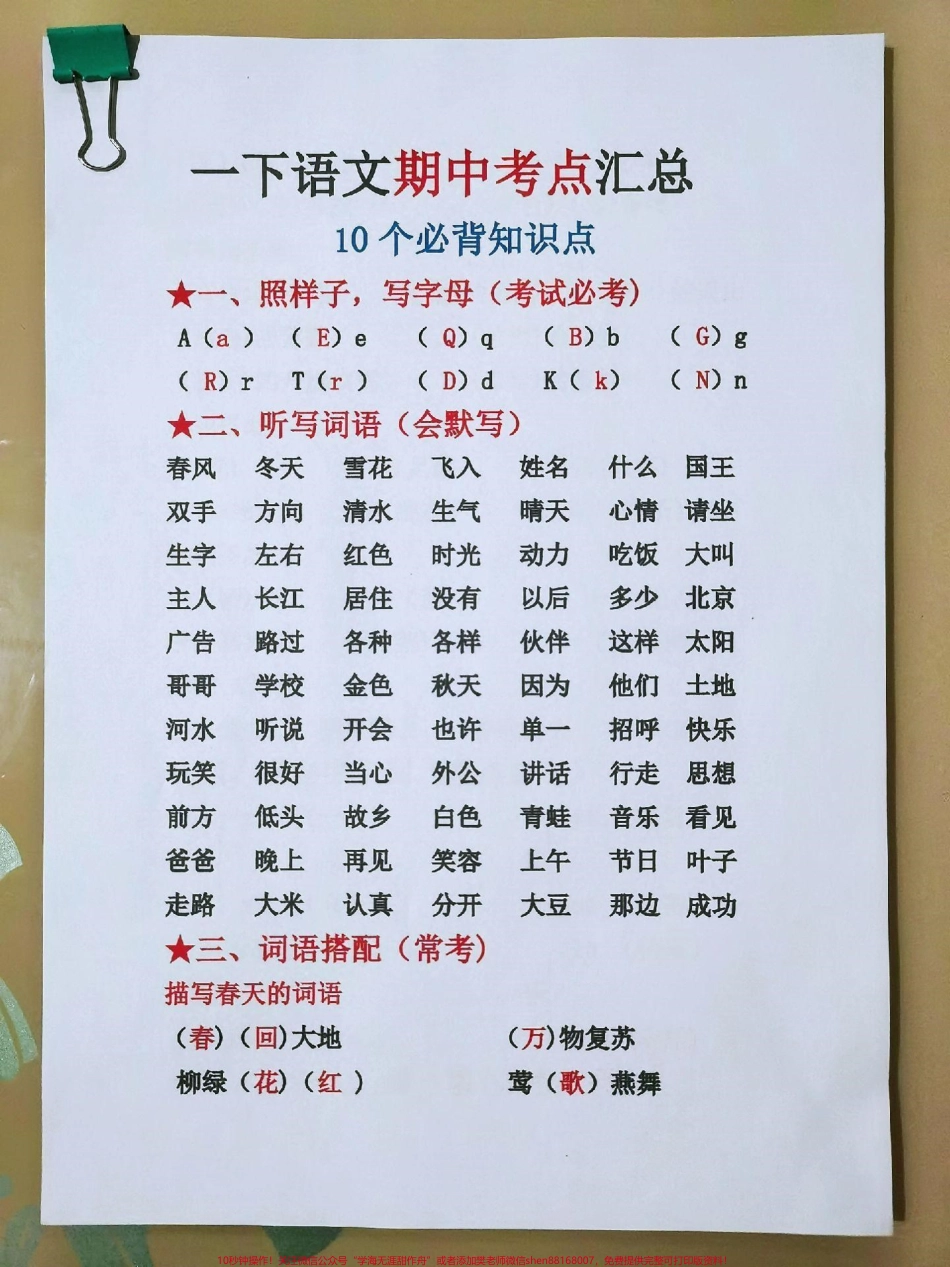 一下语文期中考点汇总
10个必背知识点
★一、照样子，写字母（考试必考）
A（a ） （ E）e （ Q）q （ B）b （ G）g
（ R）r T（r ） （ D）d K（ k） （ N）n
★二、听写词语（会默写）
春风 冬天 雪花 飞入 姓名 什么 国王
双手 方向 清水 生气 晴天 心情 请坐
生字 左右 红色 时光 动力 吃饭 大叫
主人 长江 居住 没有 以后 多少 北京
广告 路过 各种 各样 伙伴 这样 太阳
哥哥 学校 金色 秋天 因为 他们 土地
河水 听说 开会 也许 单一 招呼 快乐
玩笑 很好 当心 外公 讲话 行走 思想
前方 低头 故乡 白色 青蛙 音乐 看见
爸爸 晚上 再见 笑容 上午 节日 叶子
走路 大米 认真 分开 大豆 那边 成功
★三、词语搭配（常考）
描写春天的词语
（春）（回）大地 （万）物复苏
柳绿（花）（红 ） 莺（歌）燕舞
10秒钟操作！关注微信公众号“学海无涯甜作舟”或者添加樊老师微信shen88168007，免费提供完整可打印版资料！